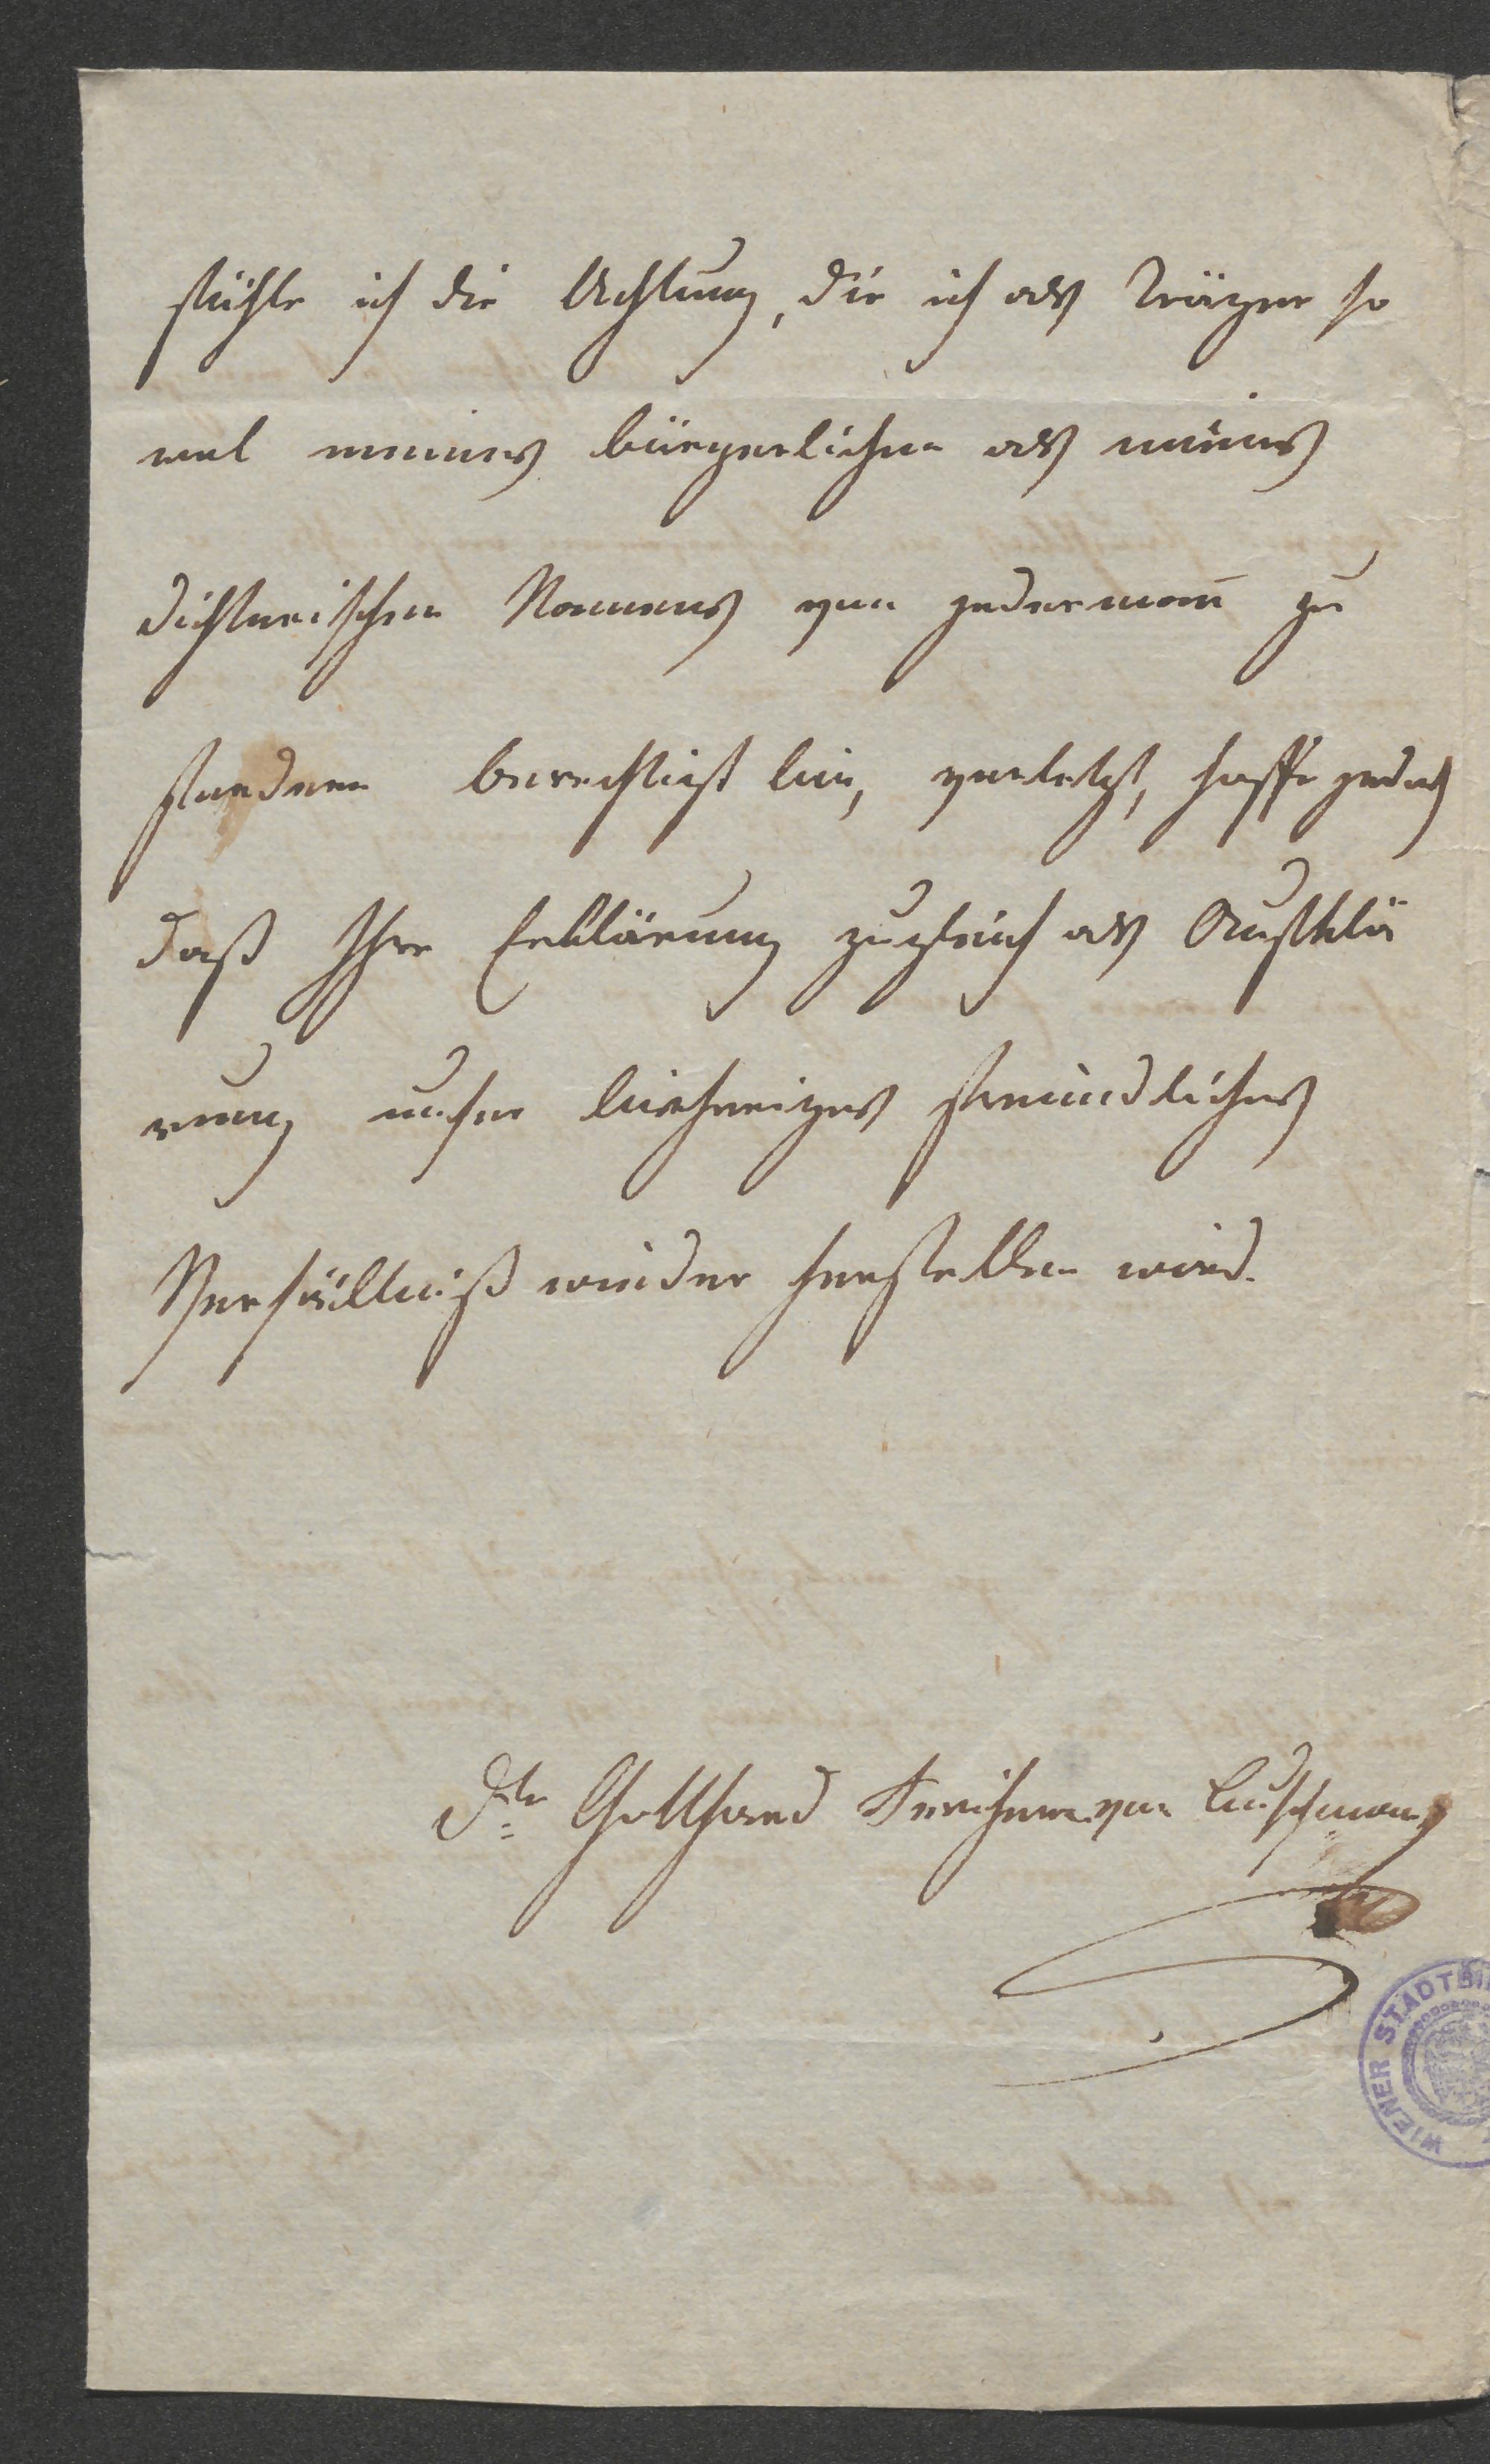 fühle ich die Achtung, die ich als Träger so
wol meines bürgerlichen als meines
dichterischen Namens von jedermañ zu
fordern berechtigt bin, verletzt, hoffe jedoch
daß Ihre Erklärung zugleich als Aufklä
rung unser bisheriges freundliches
Verhältniß wieder herstellen wird.
Dr= Gotthard Freiherr von Buschman
WIENER STADTBI